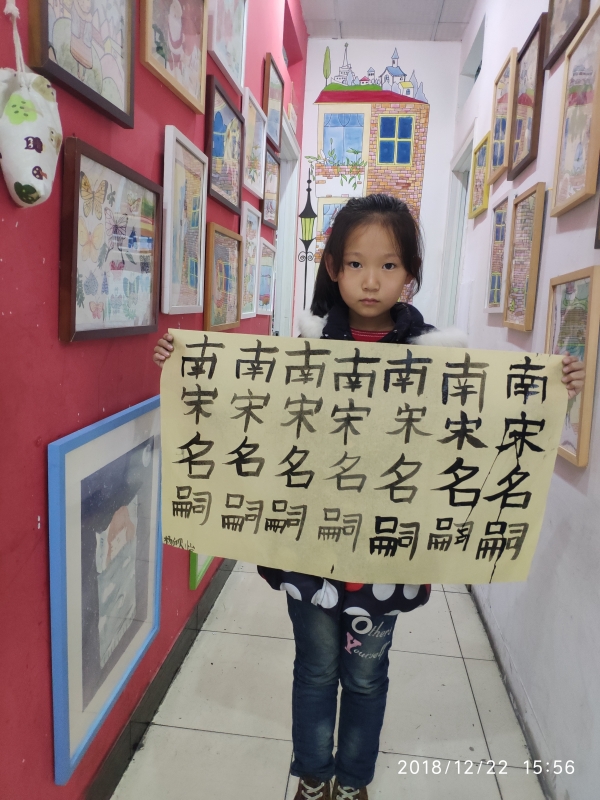 南宋名嗣
南宋名嗣
南宋名嗣
南宋名嗣
南宋名嗣
南宋名嗣
南宋名嗣
Others
Yourself
2018/12/22 15:56